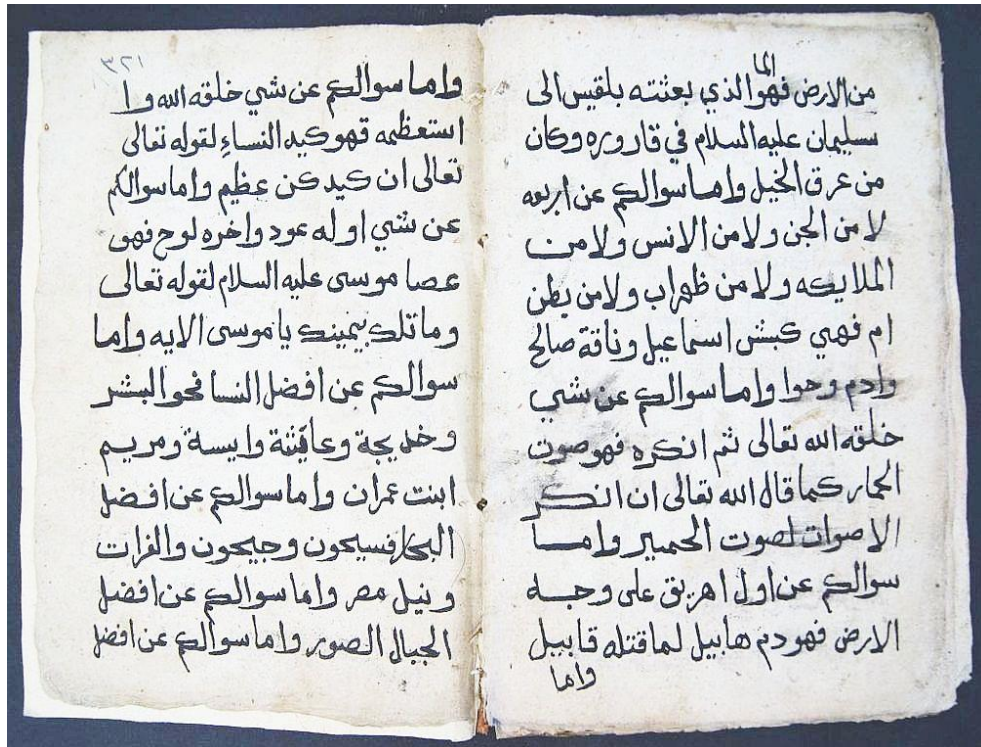 من الارض فهو الما الذي بعثته بلقيس الى
سليمان عليه السلام في قاروره وكان
من عرق الخيل واما سوالكم عن اربعه
لا من الجن ولا من الانس ولا من
الملايكه ولا من ظهر اب ولا من بطن
ام فهي كبش اسماعيل وناقة صالح
وادم وحوا واما سوالكم عن شي
خلقه الله تعالى ثم انكره فهو صوت
الحمار كما قال الله تعالى ان انكر
الاصوات لصوت الحمير واما
سوالكم عن اول اهريق على وجه
الارض فهو دم هابيل لما قتله قابيل
واما
٣٢١
واما سوالكم عن شي خلقه الله و ا
استعظمه فهو كيد النساءِ لقوله تعالى
تعالى ان كيدكن عظيم واما سوالكم
عن شي اوله عود واخره لوح فهو
عصا موسى عليه السلام لقوله تعالى
وما تلك بيمينك يا موسى الايه واما
سوالكم عن افضل النسا فحوا البشر
وخديجة وعايشة واسية ومريم
ابنت عمران واما سوالكم عن افضل
البحار فسيحون وجيحون والفرات
ونيل مصر واما سوالكم عن افضل
الجبال الصور واما سوالكم عن افضل